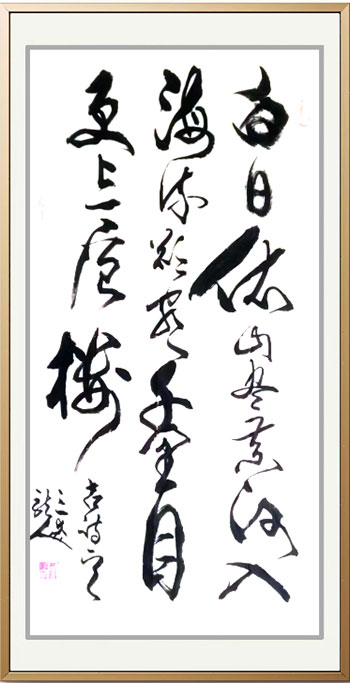 白日依山尽黄河入
海流欲穷千里目
更上一层楼
古诗